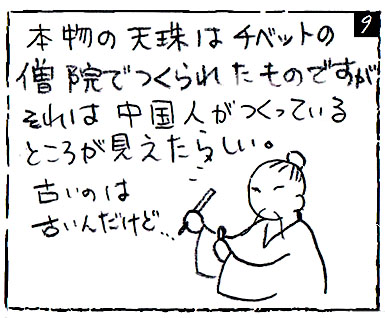 9
本物の天珠はチベットの
僧院でつくられたものですが
それは中国人がつくっている
ところが見えたらしい。
古いのは
古いんだけど…